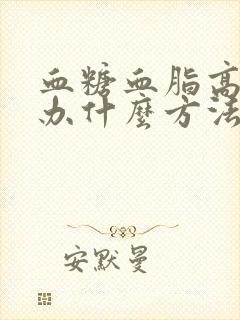 血糖血脂高
办什麼方法
安默曼